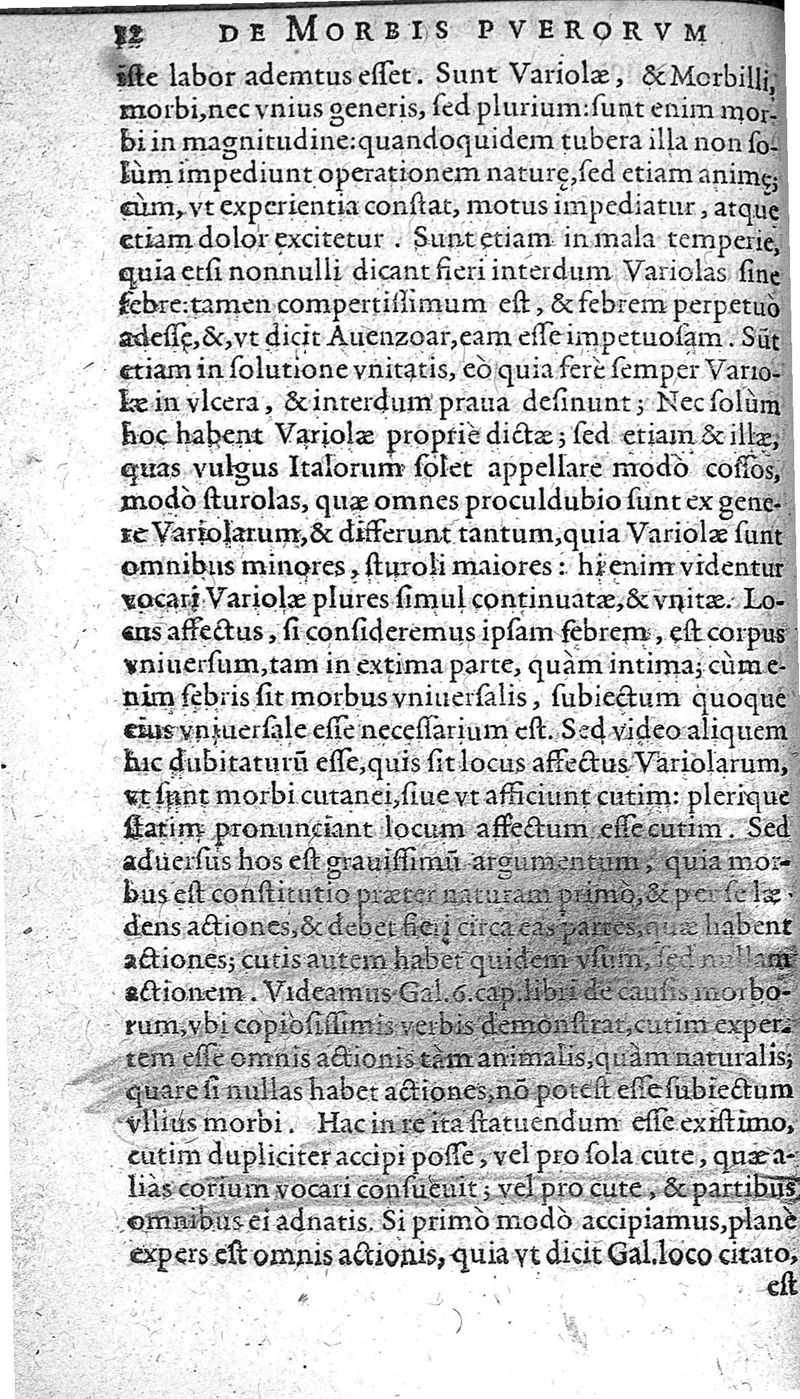 12 DE MORBIS PVERORVM
iſte labor ademtus eſſet. Sunt Variolæ, & Morbilli,
morbi, nec vnius generis, ſed plurium: ſunt enim mor-
bi in magnitudine: quandoquidem tubera illa non ſo-
lùm impediunt operationem naturę, ſed etiam animę;
cùm, vt experientia conſtat, motus impediatur, atque
etiam dolor excitetur. Sunt etiam in mala temperie,
quia etſi nonnulli dicant fieri interdum Variolas ſine
febre: tamen compertiſſimum eſt, & febrem perpetuò
adeſſę, &, vt dicit Auenzoar, eam eſſe impetuoſam. Sũt
etiam in ſolutione vnitatis, eò quia ferè ſemper Vario-
læ in vlcera, & interdum praua deſinunt; Nec ſolùm
hoc habent Variolæ propriè dictæ; ſed etiam & illæ,
quas vulgus Italorum ſolet appellare modò coſſos,
modò ſturolas, quæ omnes proculdubio ſunt ex gene-
re Variolarum, & differunt tantum, quia Variolæ ſunt
omnibus minores, ſturoli maiores: hi enim videntur
vocari Variolæ plures ſimul continuatæ, & vnitæ. Lo-
cus affectus, ſi conſideremus ipſam febrem, eſt corpus
vniuerſum, tam in extima parte, quàm intima; cùm e-
nim febris ſit morbus vniuerſalis, ſubiectum quoque
eius vniuerſale eſſe neceſſarium eſt. Sed video aliquem
hic dubitaturũ eſſe, quis ſit locus affectus Variolarum,
vt ſunt morbi cutanei, ſiue vt afficiunt cutim: plerique
ſtatim pronunciant locum affectum eſſe cutim. Sed
aduerſus hos eſt grauiſſimũ argumentum, quia mor-
bus eſt conſtitutio præter naturam primò, & per ſe læ-
dens actiones, & debet fieri circa eas partes, quæ habent
actiones; cutis autem habet quidem vſum, ſed nullam
actionem. Videamus Gal. 6. cap. libri de cauſis morbo-
rum, vbi copiòſiſſimis verbis demonſtrat, cutim exper-
tem eſſe omnis actionis tàm animalis, quàm naturalis;
quare ſi nullas habet actiones, nõ poteſt eſſe ſubiectum
vllius morbi. Hac in re ita ſtatuendum eſſe exiſtimo,
cutim dupliciter accipi poſſe, vel pro ſola cute, quæ a-
liàs corium vocari conſueuit; vel pro cute, & partibus
omnibus ei adnatis. Si primò modò accipiamus, planè
expers eſt omnis actionis, quia vt dicit Gal. loco citato,
eſt